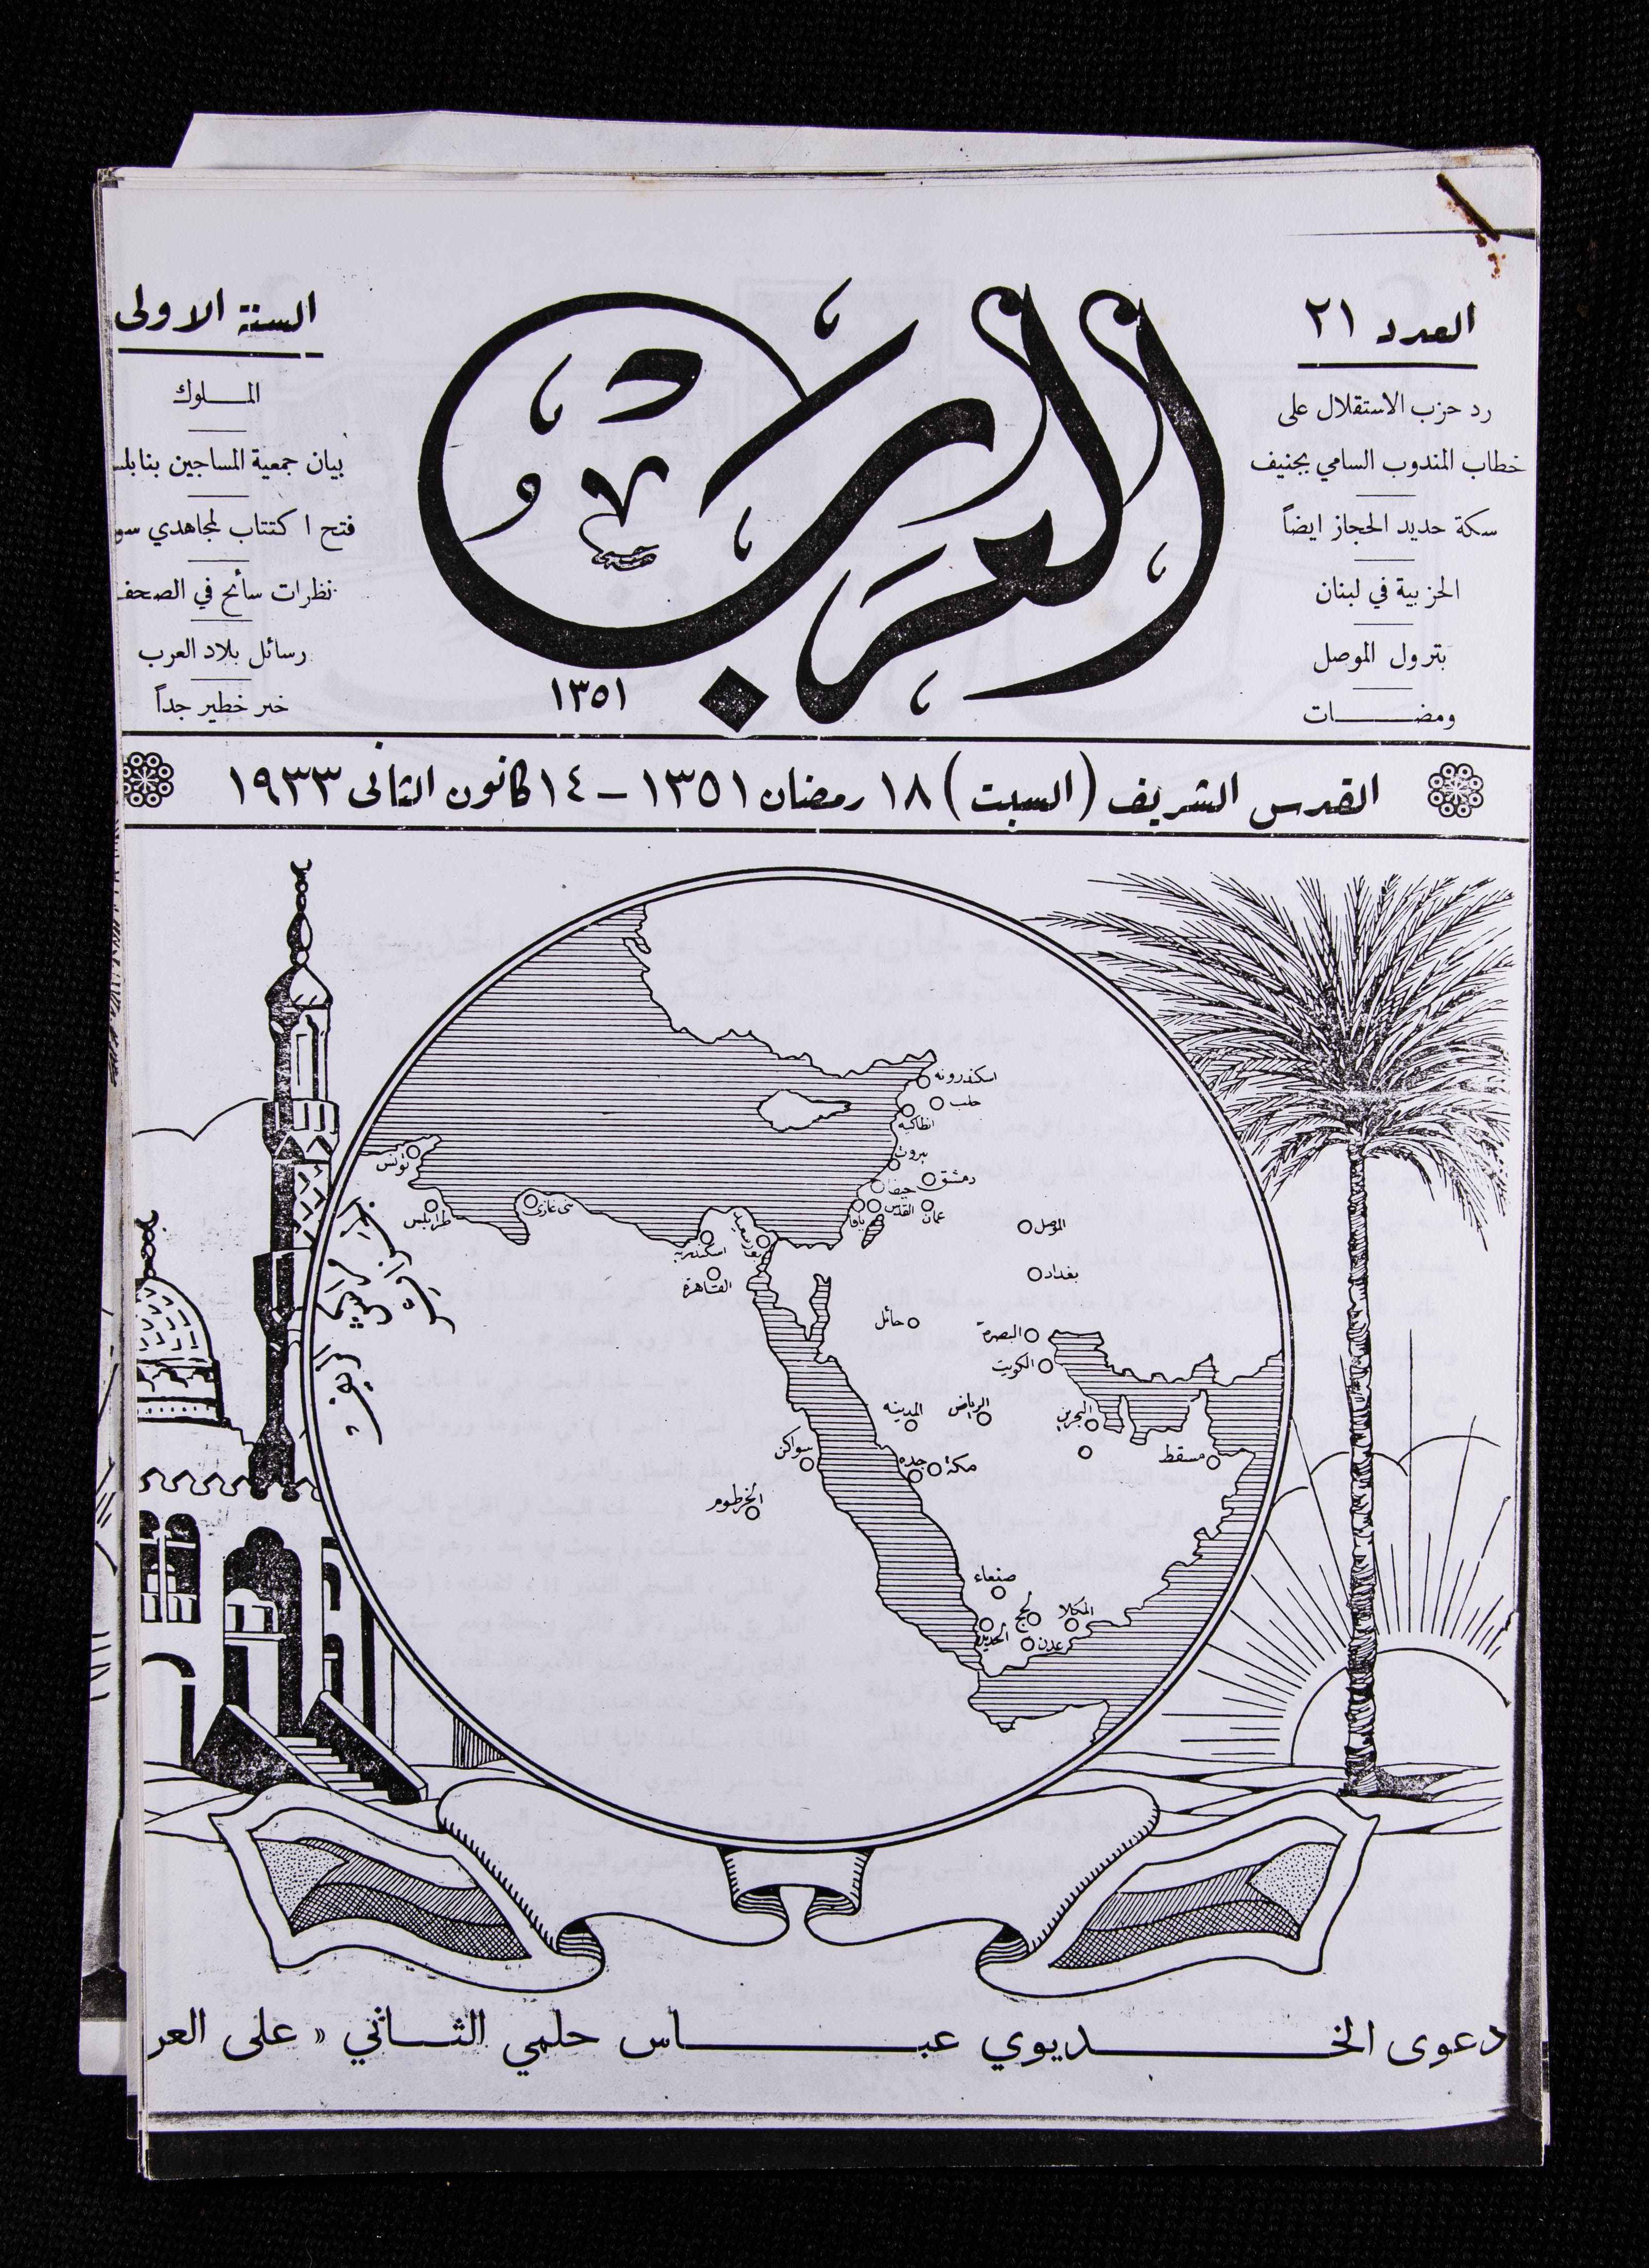 العدد ٢١
رد حزب الاستقلال على
خطاب المندوب السامي بجنيف
سكة حديد الحجاز ايضاً
الحزبية في لبنان
بترول الموصل
ومضــات
العرب
١٣٥١
السنة الاولى
الملـوك
بيان جمعية المساجين بنابلس
فتح اكتتاب لمجاهدي سو
نظرات سائح في الصحف
رسائل بلاد العرب
خبر خطير جداً
القدس الشريف (السبت) ١٨ رمضان ١٣٥١ – ١٤ كانون الثانى ١٩٣٣
اسكندرونه
حلب
انطاكيه
بيروت
دمشق
حيفا
يافا
القدس
عمان
تونس
طرابلس
بنى غازى
اسكندريه
بورسعيد
القاهرة
الموصل
بغداد
حائل
البصرة
الكويت
المدينه
الرياض
البحرين
مسقط
سواكن
جده
مكة
الخرطوم
صنعاء
لحج
المكلا
الحديدة
عدن
دعوى الخـديوي عبـاس حلمي الثـاني « على العر